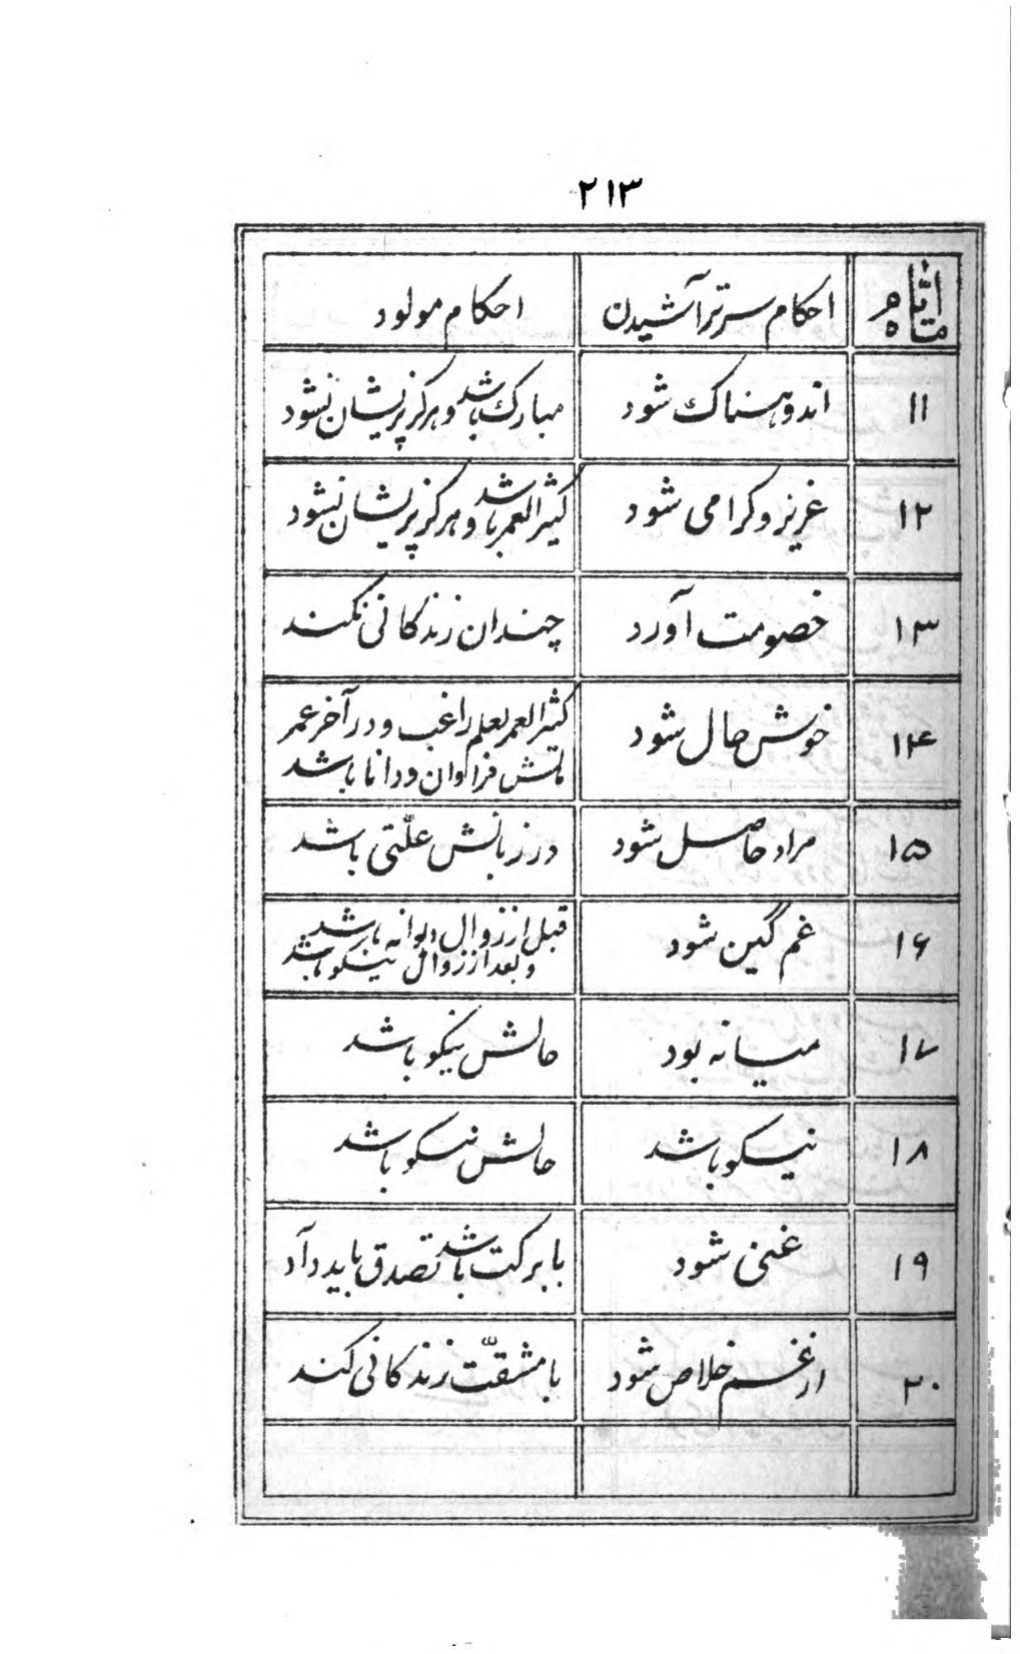 ۲۱۳
ایام ماه احکام سر تراشیدن احکام مولود
۱۱ اندوهناک شود مبارک باشد و هرکز پریشان نشود
۱۲ عزیز و کرامی شود کثیر العمر باشد و هرکز پریشان نشود
۱۳ خصومت آورد چندان زندکانی نکند
۱۴ خوش حال شود کثیر العمر بعلم راغب و در آخر عمر
مالش فراوان و دانا باشد
۱۵ مراد حاصل شود در زبانش علّتی باشد
۱۶ غم گین شود قبل از زوال دیوانه باشد
و بعد از زوال نیکو باشد
۱۷ میانه بود حالش نیکو باشد
۱۸ نیکو باشد حالش نیکو باشد
۱۹ غنی شود با برکت باشد تصدق باید داد
۲۰ از غم خلاص شود با مشقّت زندکانی کند